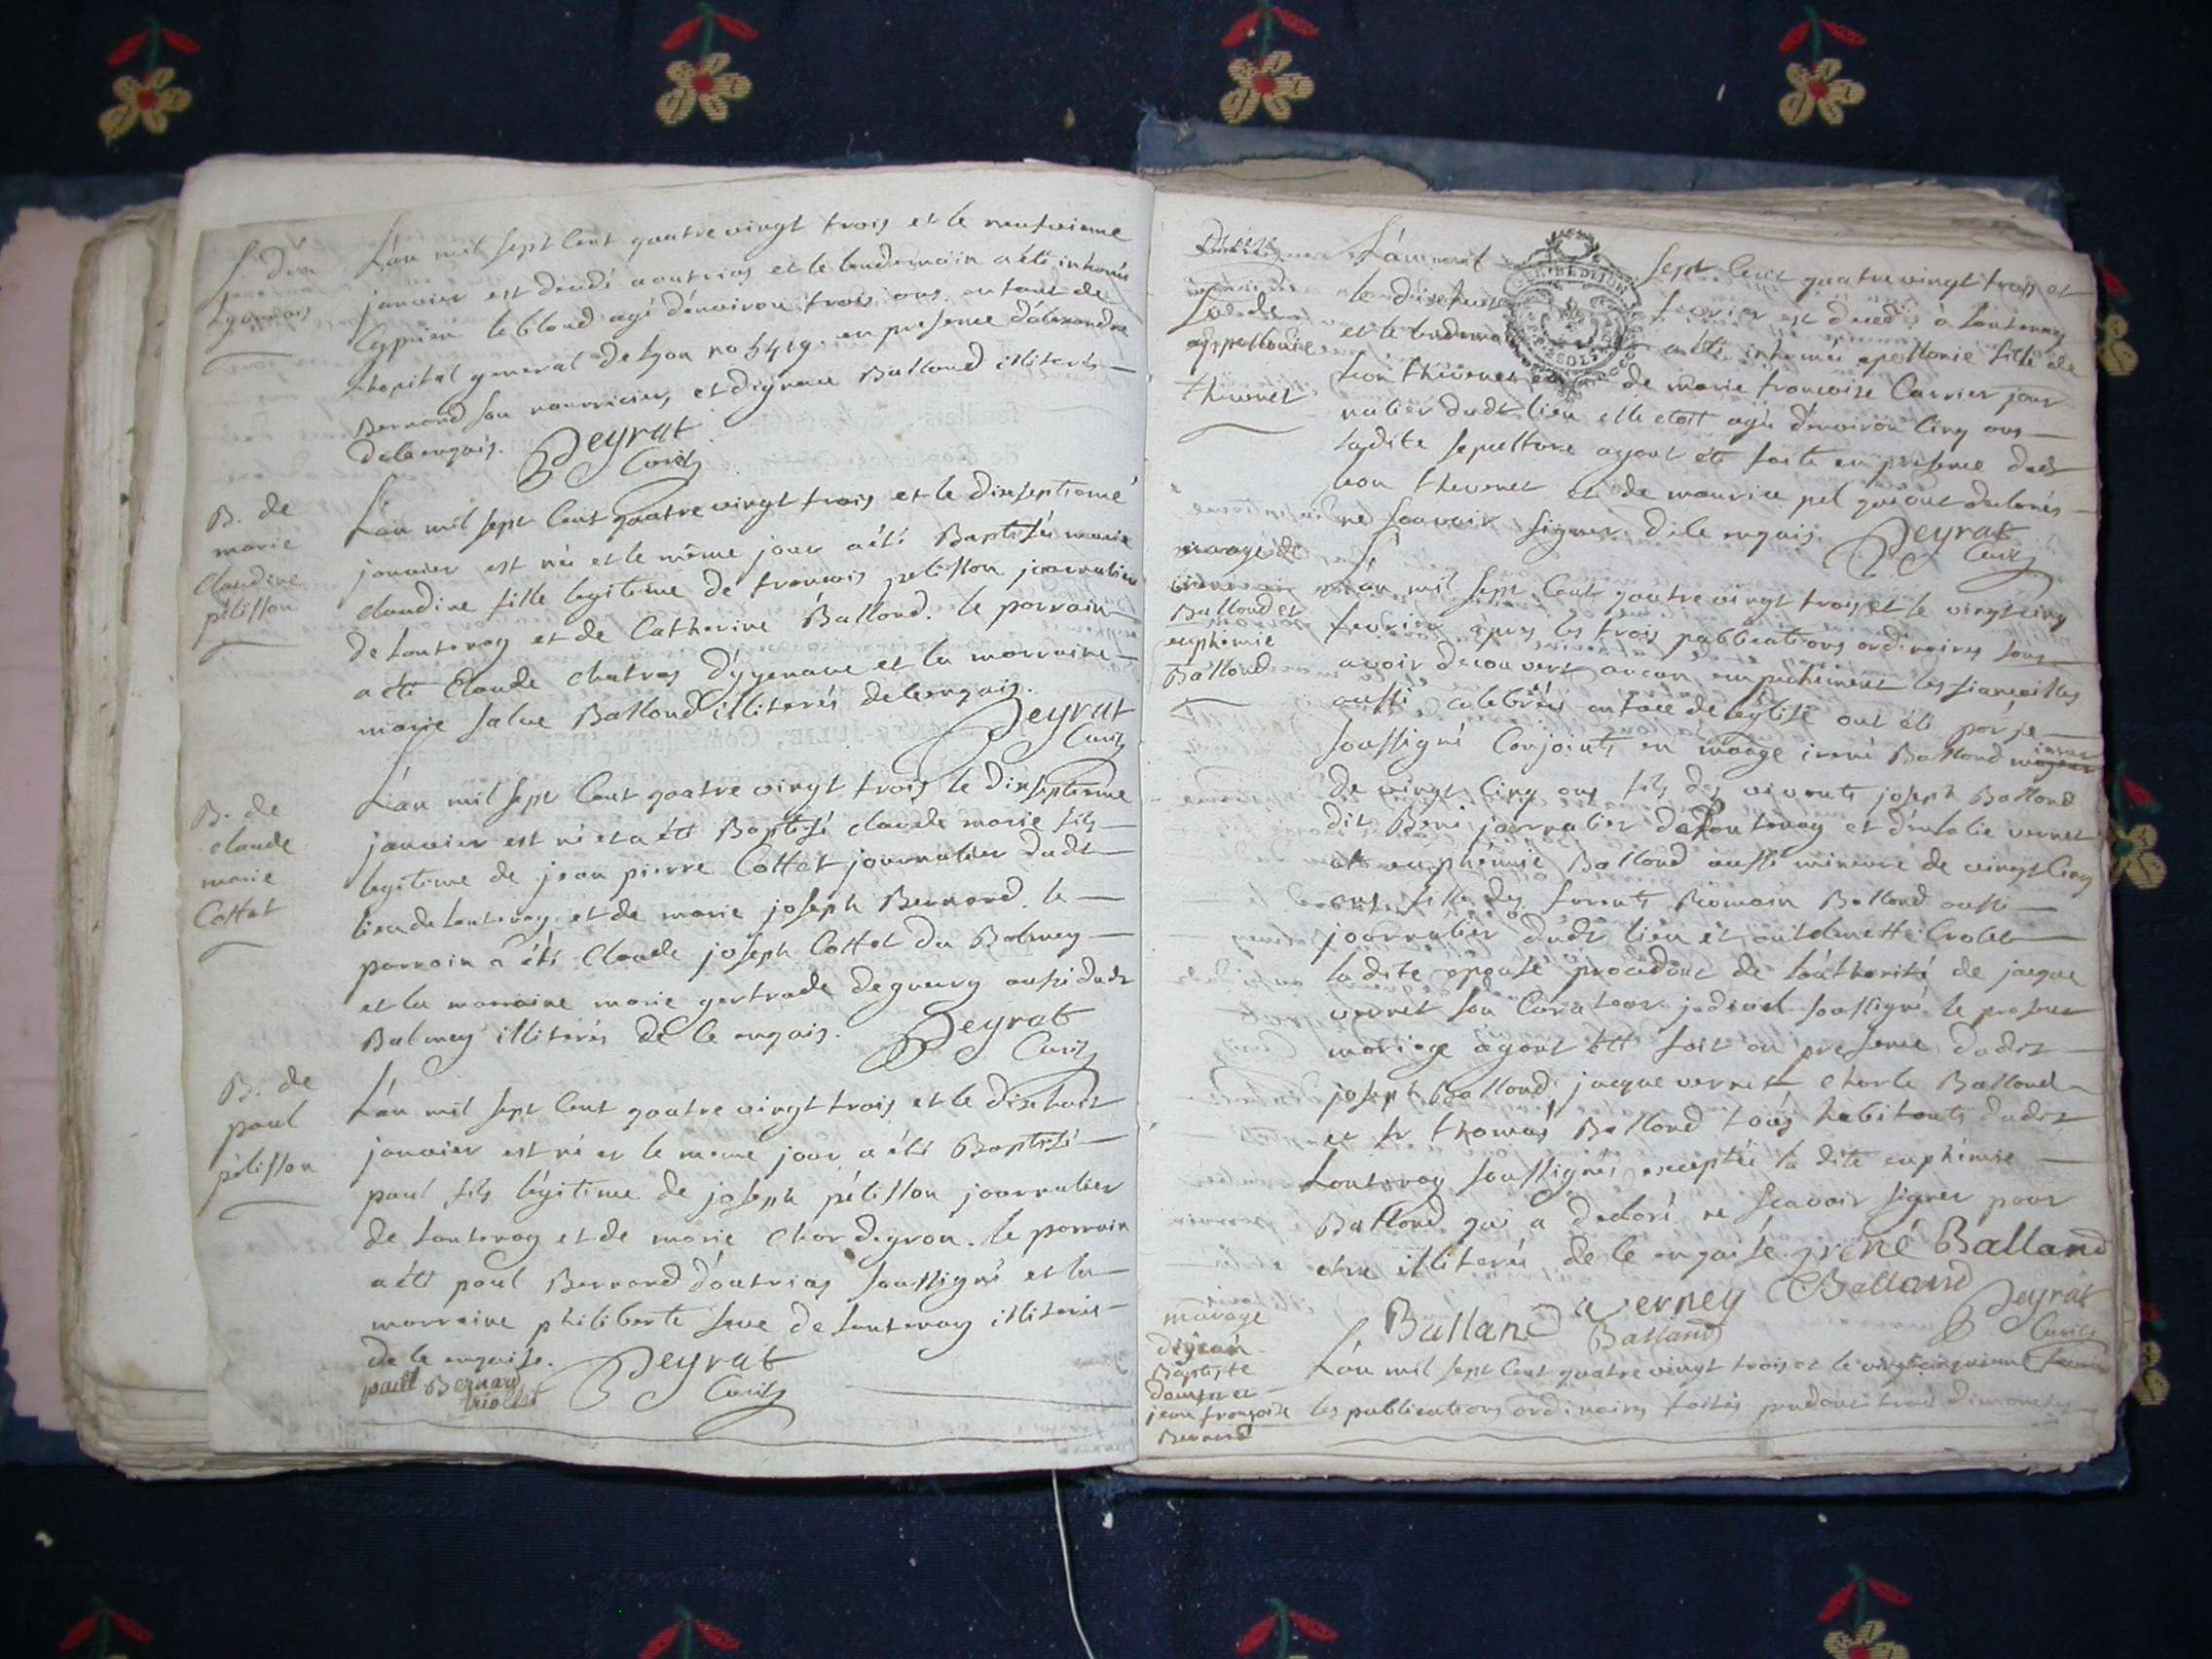 S. d'un
Lyonnois
L'an mil sept Cent quatre vingt trois et le neufvieme
janvier est decedé aoutrias et le lendemain a été inhumé
Cyprien leblond agé d'environ trois ans enfant de
lhopital general de Lyon no 5419. en presence d'alexandre
Bernard son nourricier, et dignace Balland illiterés
de le enquis. Peyrat
Curé
B. de
marie
Claudine
pelisson
L'an mil sept Cent quatre vingt trois et le dixseptieme
janvier est née et le même jour a été Baptisée marie
claudine fille legitime de francois pelisson journalier
de lantenay et de Catherine Balland. le parrain
a été Claude chatras d'ygenave et la marraine
marie Balland illiterés de le enquis.
Peyrat
Curé
B. de
claude
marie
Cottet
L'an mil sept Cent quatre vingt trois le dixseptieme
janvier est né et a été Baptisé claude marie fils
legitime de jean pierre Cottet journalier dudt
lieu de lantenay et de marie joseph Bernard. le
parrain a été Claude joseph Cottet du Balmey
et la marraine marie gertrude deguerry aussi dudt
Balmey illiterés de le enquis. Peyrat
Curé
B. de
paul
pélisson
L'an mil sept Cent quatre vingt trois et le dixhuit
janvier est né et le meme jour a été Baptisé
paul fils légitime de joseph pélisson journalier
de lantenay et de marie Chardeyron. le parrain
a été paul Bernard d'outrias soussigné et la
marraine philiberte seve de lantenay illiterée
de le enquise. Peyrat
paul Bernard Curé
S. de
appollonie
thevenet
L'an mil sept Cent quatre vingt trois et
le dixhuit fevrier est decedée à lantenay
et le lendemain a été inhumée apollonie fille de
leon thevenet et de marie francoise Carrier jour
nalier dudt lieu elle etoit agée d'environ Cinq ans
ladite sepulture ayant été faite en presence dudt
leon thevenet et de maurice pel qui ont declarés
ne scavoir signer de le enquis. Peyrat
Curé
mariage de
irené
Balland et
euphémie
Balland
L'an mil sept Cent quatre vingt trois et le vingt cinq
fevrier apres les trois publications ordinaires sans
avoir decouvert aucun empechement les fiancailles
aussi celebrées en face de léglise ont été par je
soussigné Conjoints en mariage irené Balland mineur
de vingt Cinq ans fils des vivants joseph Balland
dit Bené journalier de Lantenay et d'eulalie vernet
et euphémie Balland aussi mineure de vingt Cinq
ans fille des furent Romain Balland aussi
journalier dudt lieu et Crolet
ladite epouse procedant de láuthorité de jacque
vernet son Curateur judiciel soussigné le present
mariage ayant été fait en presence dudit
joseph Balland, jacque vernet Charle Balland
et sr thomas Balland tous habitants dudit
Lantenay soussignés exceptée la dite euphémie
Balland qui a declaré ne scavoir signer pour
etre illiterée de le enquise. irené Balland
Balland verney Balland Peyrat
Balland Curé
mariage
de jean
Baptiste
et
jeanfrançoise
Bernard
L'an mil sept Cent quatre vingt trois et le vingtcinquieme fevrier
les publications ordinaires faites pendant trois dimanches